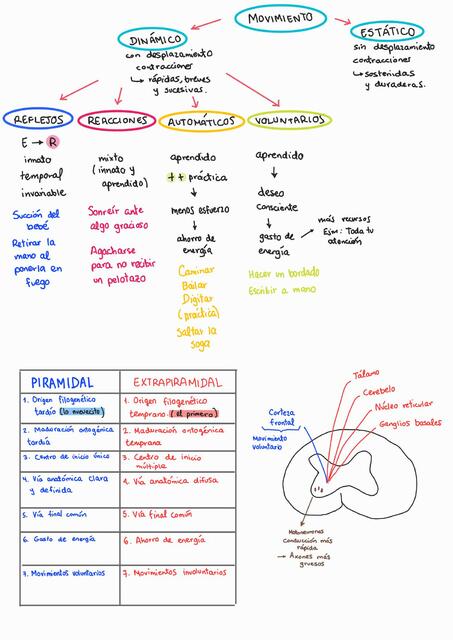 MOVIMIENTO
DINÁMICO
con desplazamiento
contracciones
↳ rápidas, breves
y sucesivas.
ESTÁTICO
sin desplazamiento
contracciones
↳ sostenidas
y duraderas.
REFLEJOS
E → R
innato
temporal
invariable
Succión del
bebé
Retirar la
mano al
ponerla en
fuego
REACCIONES
mixto
(innato y
aprendido)
Sonreír ante
algo gracioso
Agacharse
para no recibir
un pelotazo
AUTOMÁTICOS
aprendido
++ práctica
↓
menos esfuerzo
↓
ahorro de
energía
Caminar
Bailar
Digitar
(práctica)
Saltar la
soga
VOLUNTARIOS
aprendido
↓
deseo
consciente
↓
gasto de
energía
más recursos
Ejm: Toda tu
atención
Hacer un bordado
Escribir a mano
PIRAMIDAL
EXTRAPIRAMIDAL
1. Origen filogenético
tardío
1. Origen filogenético
temprano (el primero)
2. Maduración ontogénica
tardía
2. Maduración ontogénica
temprana
3. Centro de inicio único
3. Centro de inicio
múltiple
4. Vía anatómica clara
y definida
4. Vía anatómica difusa
5. Vía final común
5. Vía final común
6. Gasto de energía
6. Ahorro de energía
7. Movimientos voluntarios
7. Movimientos involuntarios
Tálamo
Cerebelo
Núcleo reticular
Ganglios basales
Corteza
frontal
Movimiento
voluntario
Motoneuronas
Conducción más
rápida
→ Axones más
gruesos